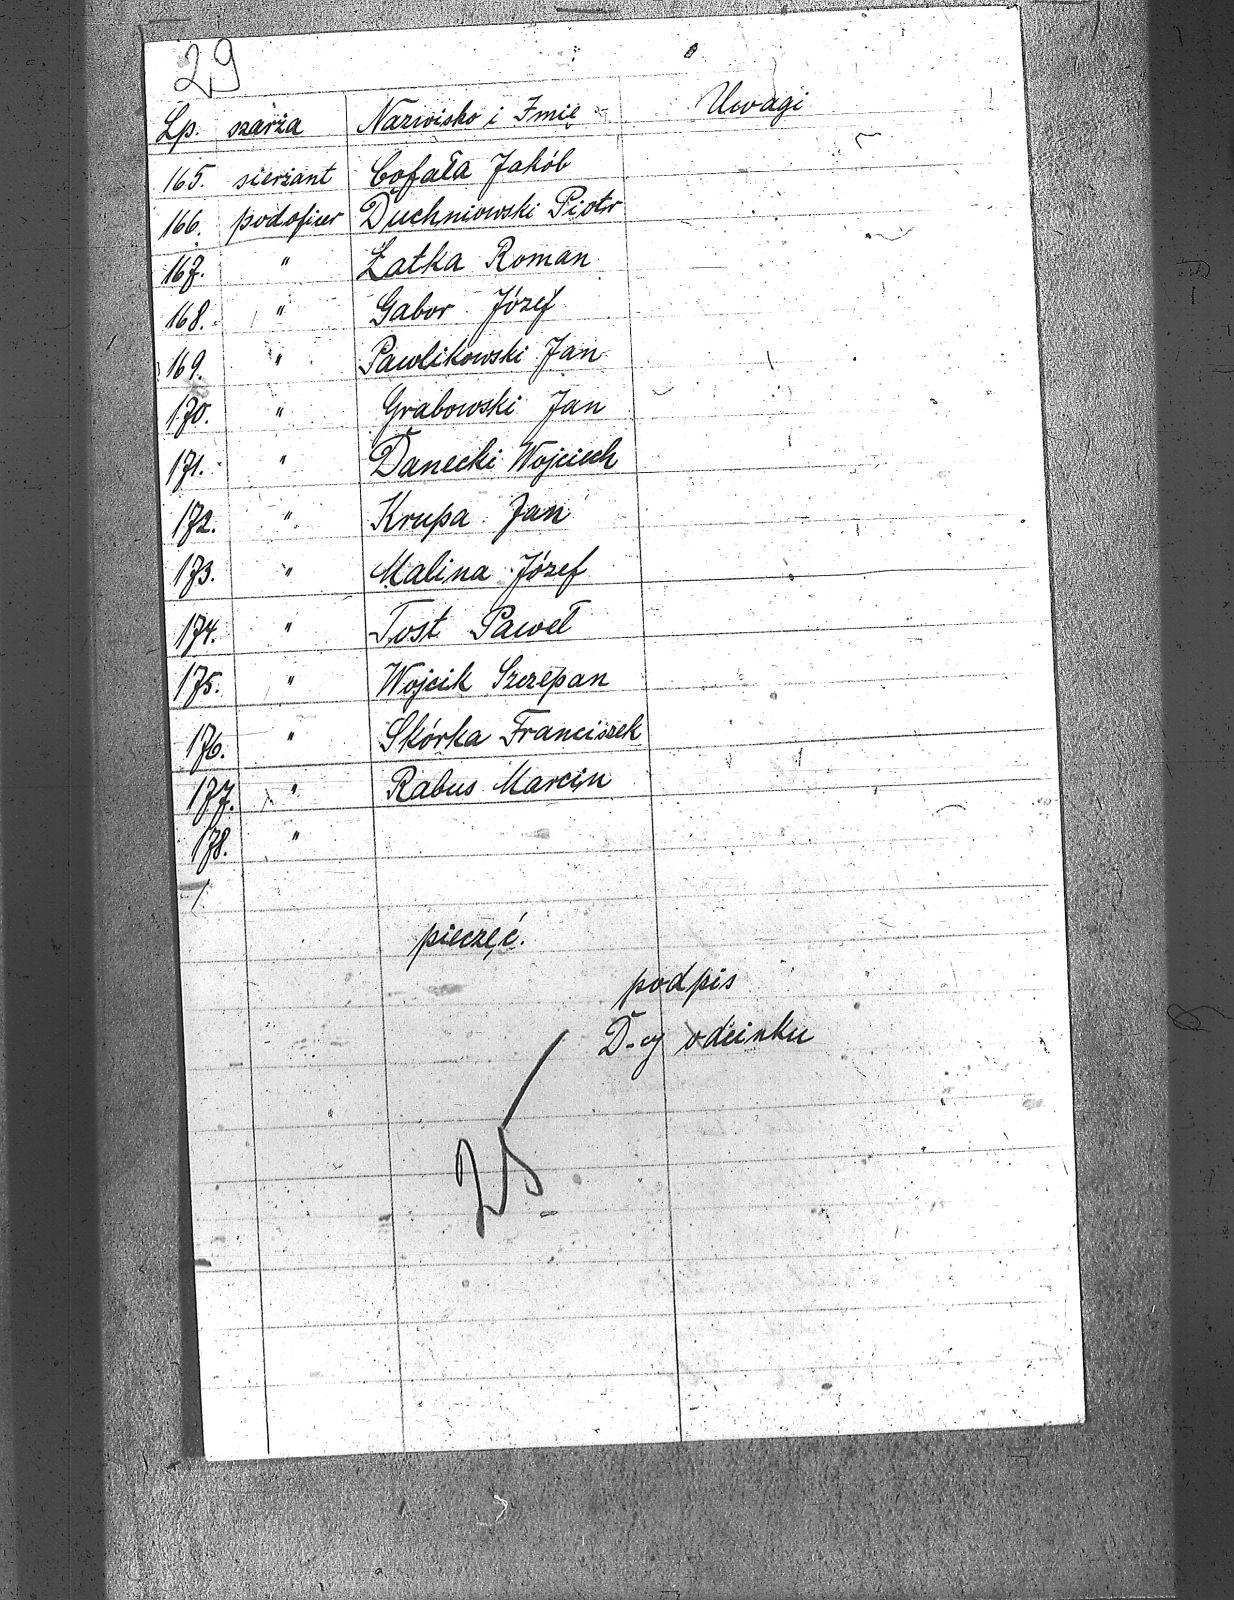 29
Lp. szarża Nazwisko i Imię Uwagi
165. sierżant Cofała Jakób
166. podoficer Duchniowski Piotr
167. " Łatka Roman
168. " Gabor Józef
169. " Pawlikowski Jan
170. " Grabowski Jan
171. " Danecki Wojciech
172. " Krupa Jan
173. " Malina Józef
174. " Tost Paweł
175. " Wojcik Szczepan
176. " Skórka Franciszek
177. " Rabus Marcin
178. "
pieczęć.
podpis
D-cy odcinku